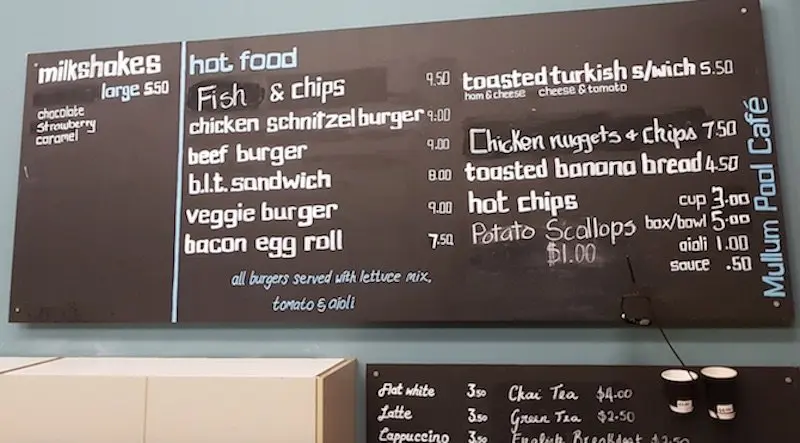 milkshakes
large 5.50
chocolate
strawberry
caramel
hot food
Fish & chips 9.50
chicken schnitzel burger 9.00
beef burger 9.00
b.l.t. sandwich 8.00
veggie burger 9.00
bacon egg roll 7.50
all burgers served with lettuce mix,
tomato & aioli
toasted turkish s/wich 5.50
ham & cheese cheese & tomato
Chicken nuggets & chips 7.50
toasted banana bread 4.50
hot chips cup 3.00
box/bowl 5.00
Potato Scallops
$1.00
aioli 1.00
sauce .50
Mullum Pool Café
Flat white 3.50
Latte 3.50
Cappuccino 3.50
Chai Tea $4.00
Green Tea $2.50
English Breakfast $2.50